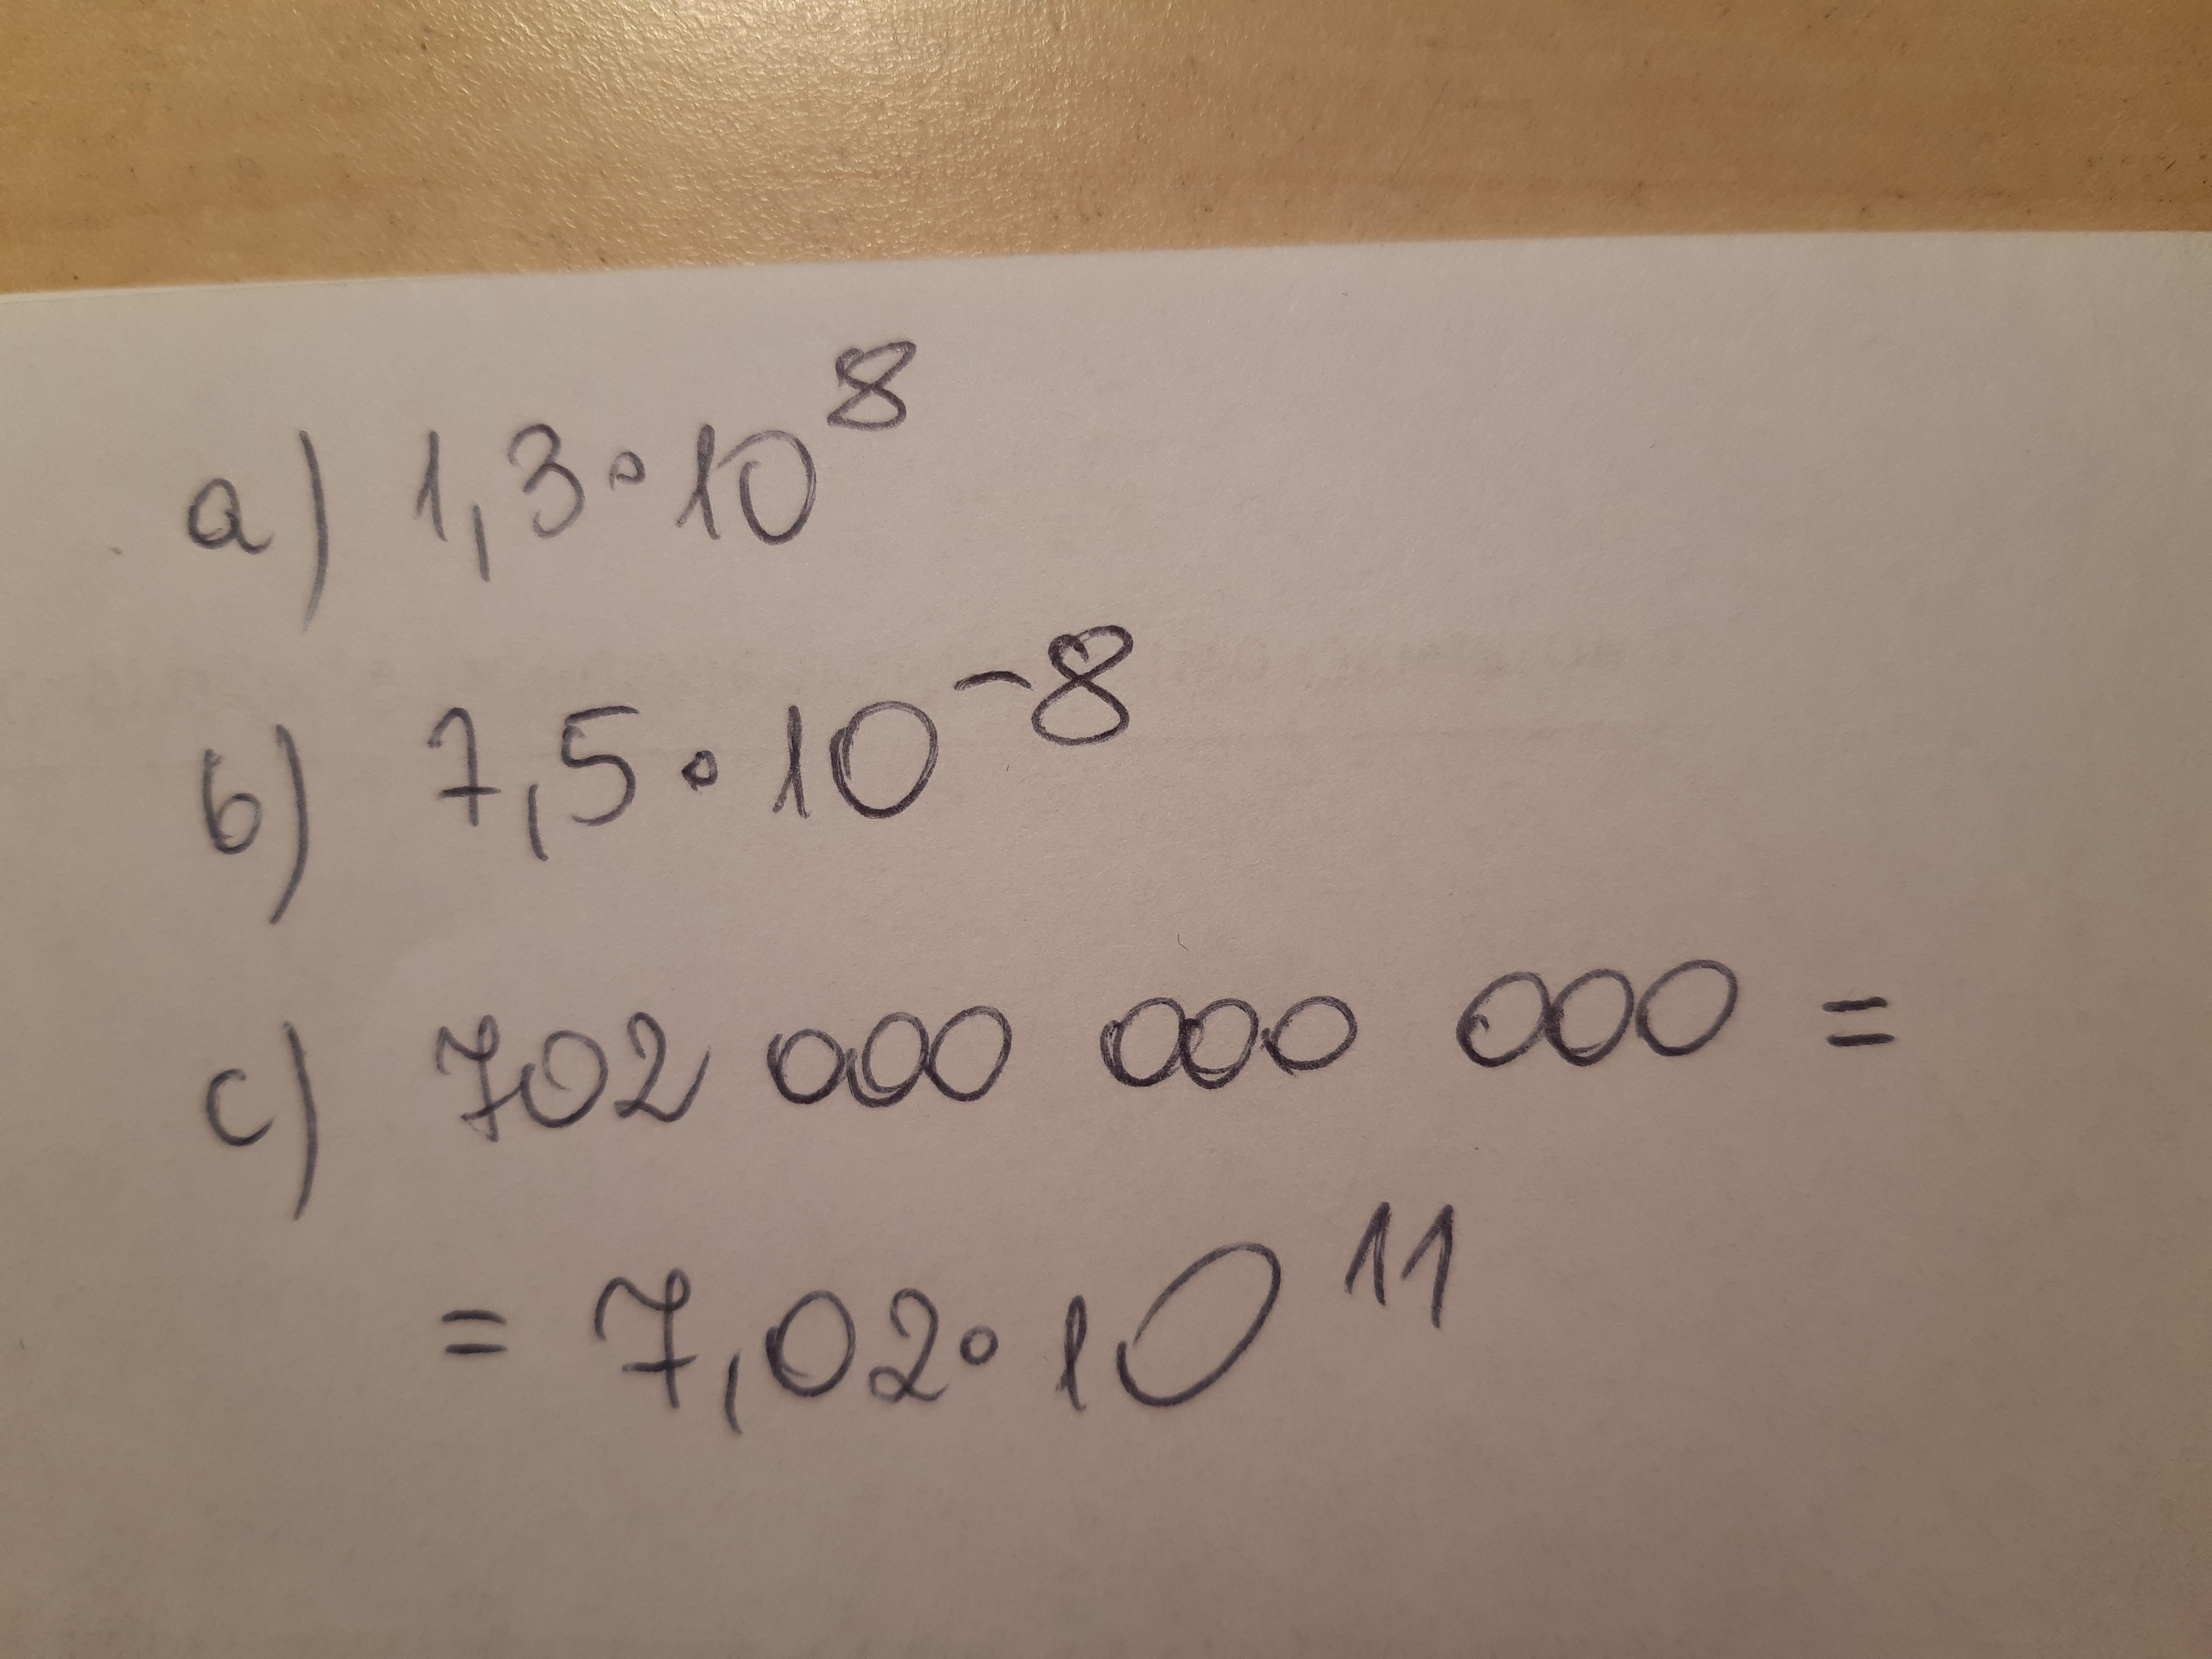 a) 1,3∘10⁸
b) 7,5∘10⁻⁸
c) 702 000 000 000 =
= 7,02∘10¹¹